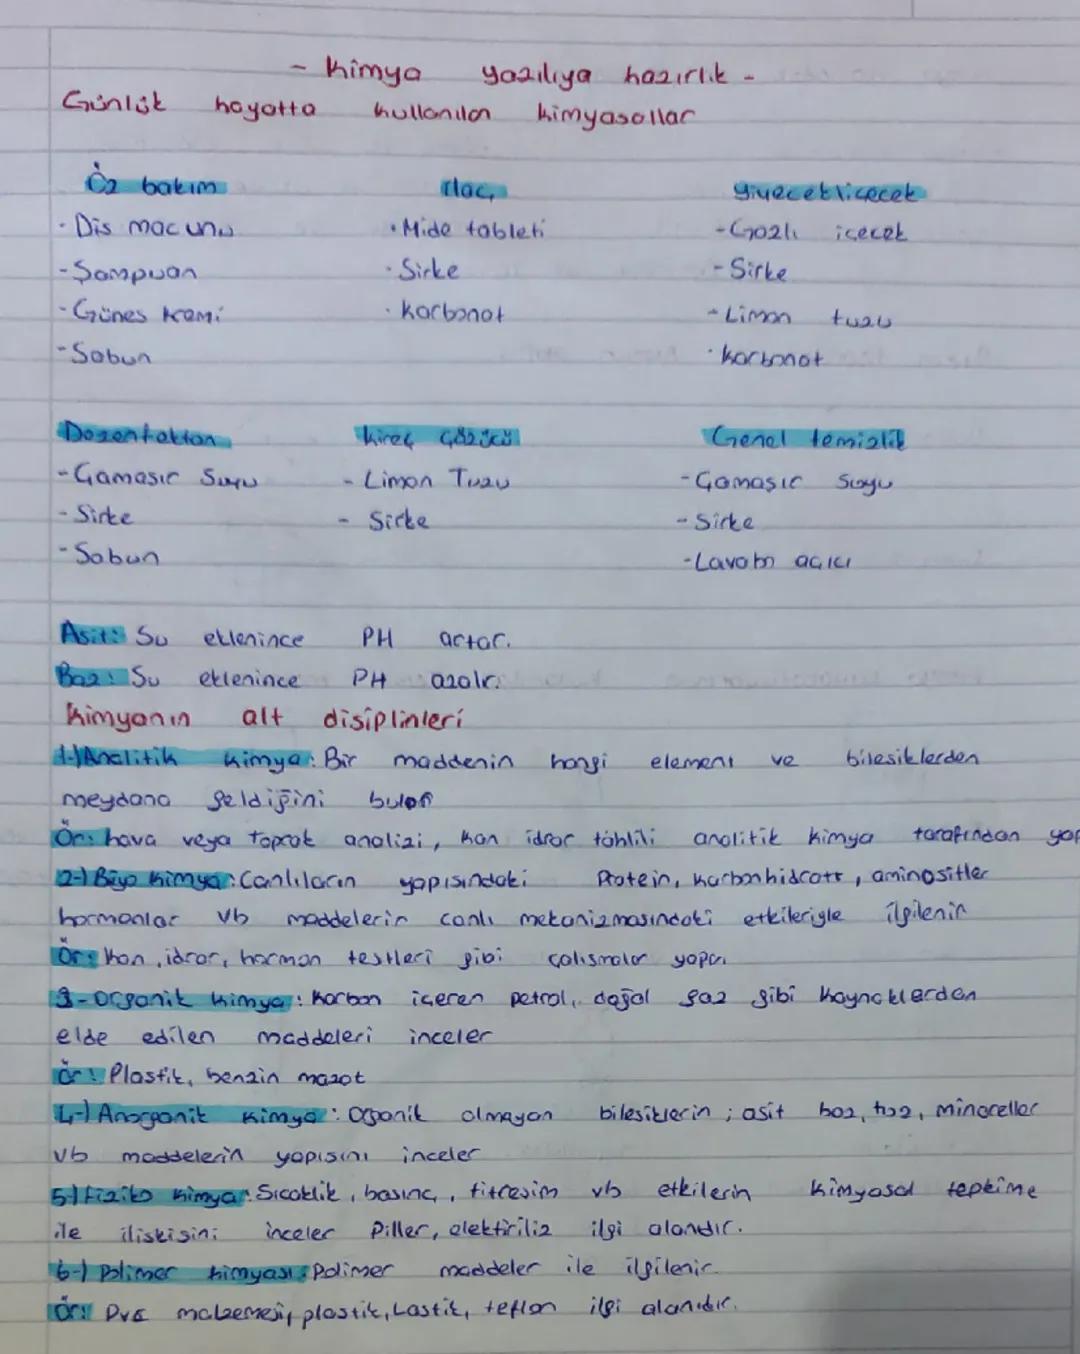 - Kimya yazılıya hazırlık -
Günlük hayatta kullanılan kimyasallar
Öz bakım İlaç yiyecek içecek
- Diş macunu • Mide tableti - Gazlı içecek
- Şampuan • Sirke - Sirke
- Güneş kremi • karbonat - Limon tuzu
- Sabun • karbonat
Dezenfektan kireç çözücü Genel temizlik
- Çamaşır Suyu - Limon Tuzu - Çamaşır Suyu
- Sirke - Sirke - Sirke
- Sabun - Lavabo açıcı
Asit: Su eklenince PH artar.
Baz: Su eklenince PH azalır.
Kimyanın alt disiplinleri
1-) Analitik kimya: Bir maddenin hangi element ve bileşiklerden
meydana geldiğini bulur
Ör: hava veya toprak analizi, kan idrar tahlili analitik kimya tarafından yap
2-) Biyo kimya: Canlıların yapısındaki Protein, karbonhidratt, aminoasitler
hormonlar vb maddelerin canlı mekanizmasındaki etkileriyle ilgilenir
Ör: Kan, idrar, hormon testleri gibi çalışmalar yapar
3- Organik kimya: Karbon içeren petrol, doğal gaz gibi kaynaklardan
elde edilen maddeleri inceler
ör: Plastik, benzin mazot
4-) Anorganik kimya: Organik olmayan bileşiklerin; asit baz, tuz, mineraller
vb maddelerin yapısını inceler
5-) Fiziko kimya: Sıcaklık, basınç, titreşim vb etkilerin kimyasal tepkime
ile ilişkisini inceler Piller, elektiriliz ilgi alanıdır.
6-) Polimer kimyası: Polimer maddeler ile ilgilenir.
Ör: Pvc malzemesi, plastik, Lastik, teflon ilgi alanıdır.